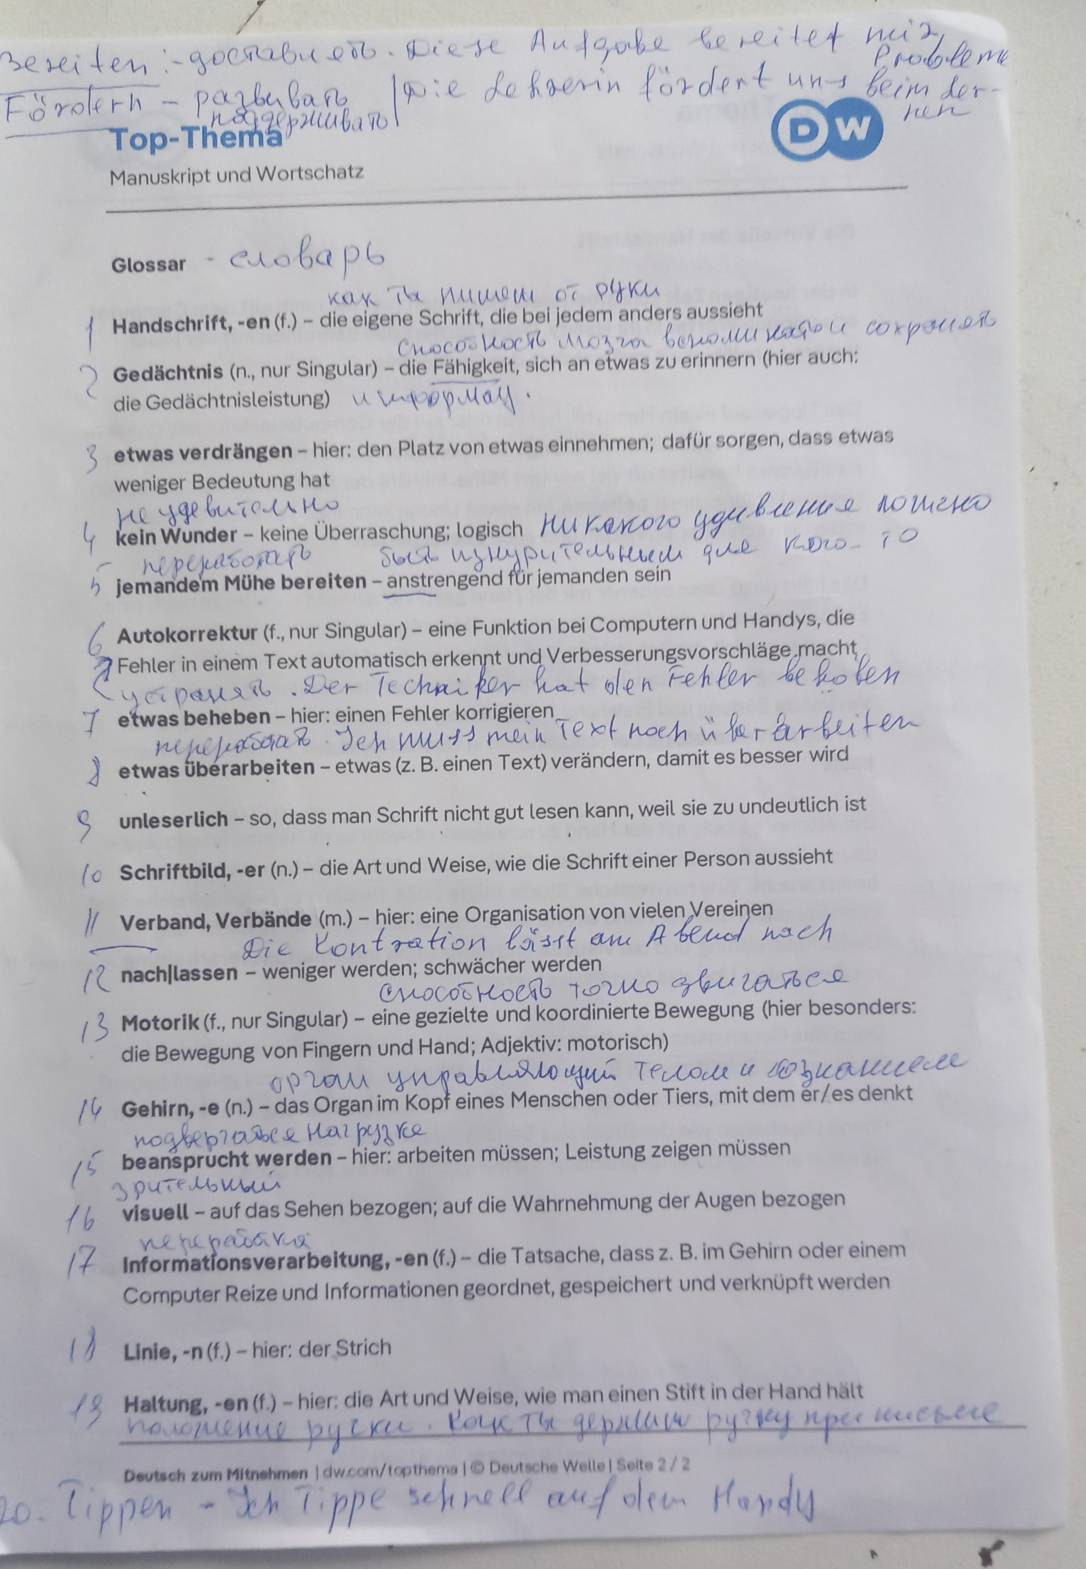 Bereiten :- доставлять. Diese Aufgabe bereitet mir
Probleme
Fördern - развивать | Die Lehrerin fördert uns beim Ler-
поддерживать
nen
Top-Thema
DW
Manuskript und Wortschatz
Glossar - словарь
как ты пишеш от руки
1 Handschrift, -en (f.) – die eigene Schrift, die bei jedem anders aussieht
способность мозга вспоминать и сохранять
2 Gedächtnis (n., nur Singular) – die Fähigkeit, sich an etwas zu erinnern (hier auch:
die Gedächtnisleistung) информац.
3 etwas verdrängen – hier: den Platz von etwas einnehmen; dafür sorgen, dass etwas
weniger Bedeutung hat
не удевительно
4 kein Wunder – keine Überraschung; logisch никакого удивление
быть изнурительным для кого-то
5 jemandem Mühe bereiten – anstrengend für jemanden sein
6 Autokorrektur (f., nur Singular) – eine Funktion bei Computern und Handys, die
Fehler in einem Text automatisch erkennt und Verbesserungsvorschläge macht
устранять. Der Techniker hat den Fehler behoben
7 etwas beheben – hier: einen Fehler korrigieren
переработать. Ich muss mein Text noch überarbeiten
8 etwas überarbeiten – etwas (z. B. einen Text) verändern, damit es besser wird
9 unleserlich – so, dass man Schrift nicht gut lesen kann, weil sie zu undeutlich ist
10 Schriftbild, -er (n.) – die Art und Weise, wie die Schrift einer Person aussieht
11 Verband, Verbände (m.) – hier: eine Organisation von vielen Vereinen
Die Kontration lässt am Abend nach
12 nach|lassen – weniger werden; schwächer werden
способность точно двигаться
13 Motorik (f., nur Singular) – eine gezielte und koordinierte Bewegung (hier besonders:
die Bewegung von Fingern und Hand; Adjektiv: motorisch)
орган управляющий телом и сознанием
14 Gehirn, -e (n.) – das Organ im Kopf eines Menschen oder Tiers, mit dem er/es denkt
подвергаться нагрузке
15 beansprucht werden – hier: arbeiten müssen; Leistung zeigen müssen
зрительный
16 visuell – auf das Sehen bezogen; auf die Wahrnehmung der Augen bezogen
переработка
17 Informationsverarbeitung, -en (f.) – die Tatsache, dass z. B. im Gehirn oder einem
Computer Reize und Informationen geordnet, gespeichert und verknüpft werden
18 Linie, -n (f.) – hier: der Strich
19 Haltung, -en (f.) – hier: die Art und Weise, wie man einen Stift in der Hand hält
положение ручки. Как ты держиш ручку при письме
Deutsch zum Mitnehmen | dw.com/topthema | © Deutsche Welle | Seite 2 / 2
20. Tippen - Ich Tippe schnell auf dem Handy